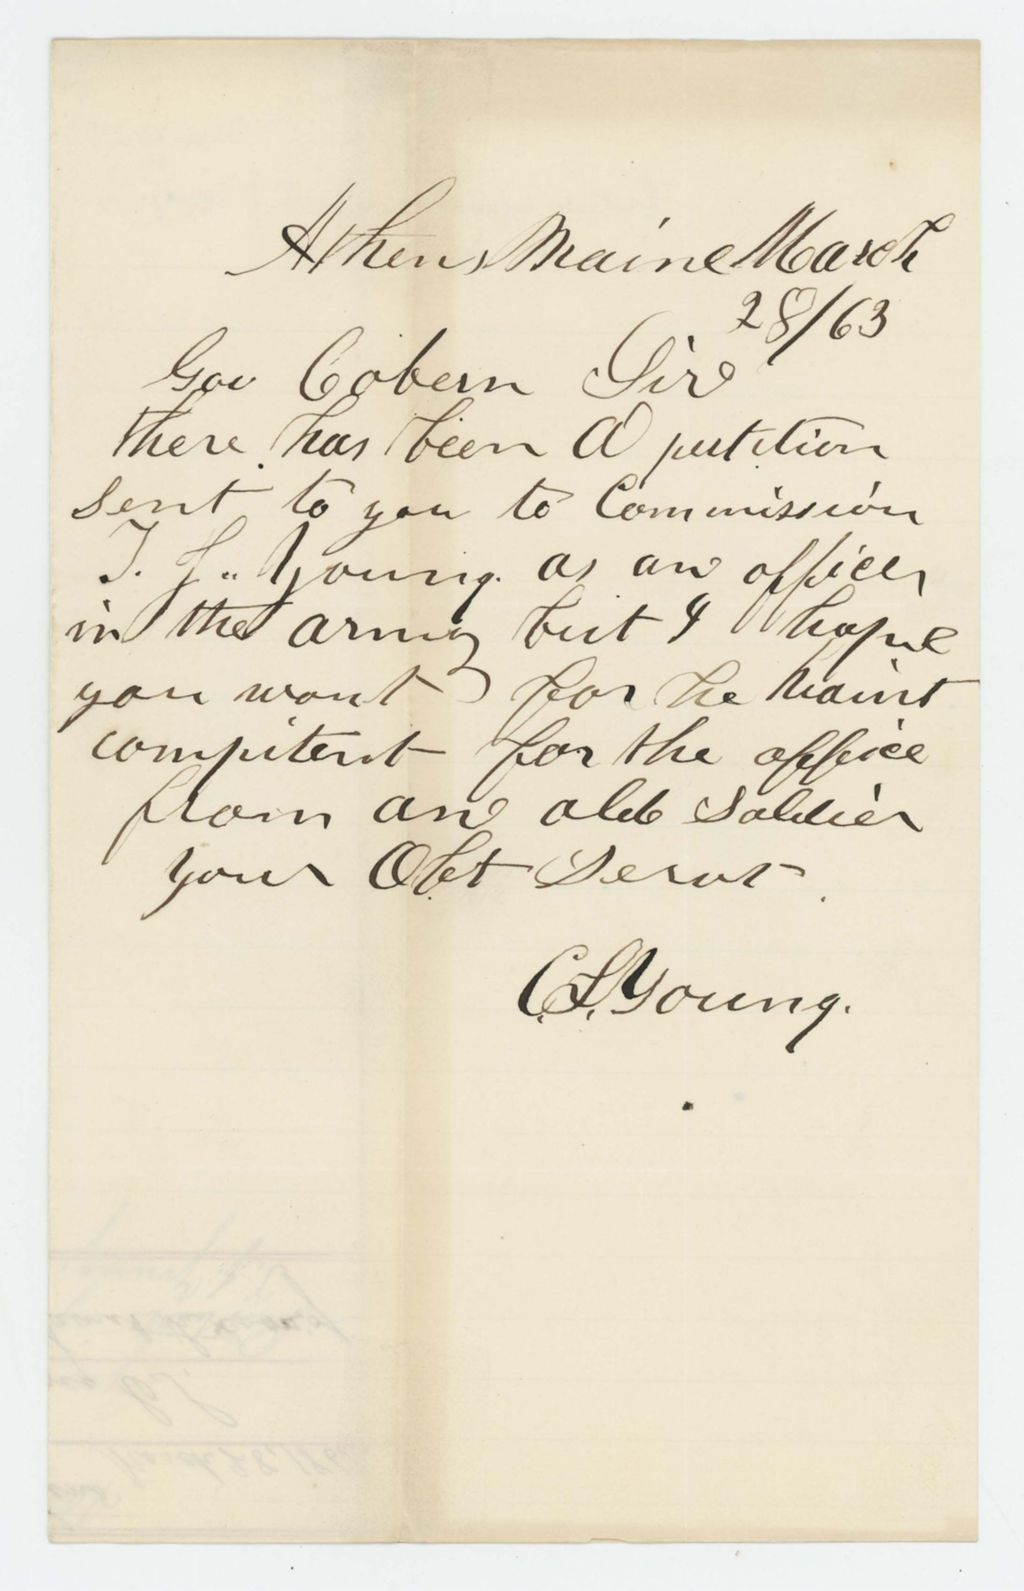 Athens Maine March
28/63
Gov Cobern Sir
there has been A petition
sent to you to Commission
T. J. Young. as an officer
in the army but I hope
you wont for he haint
compitent for the office
from an old soldier
your Obt Servt
C. S. Young.